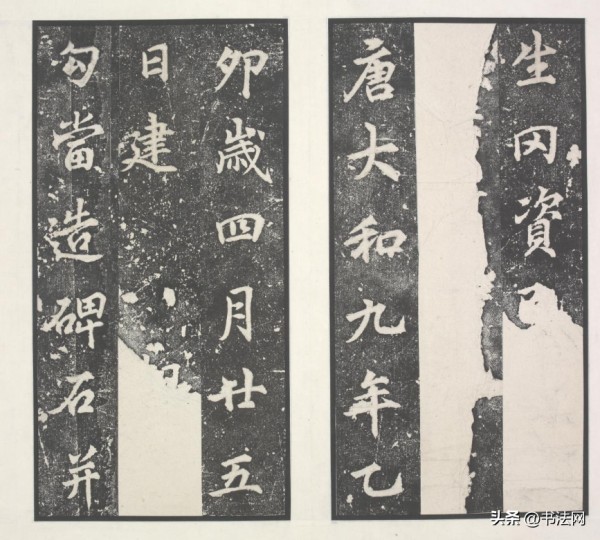 生罔資
唐大和九年乙
卯歲四月廿五
日建
勾當造碑石并
头条 @书法网